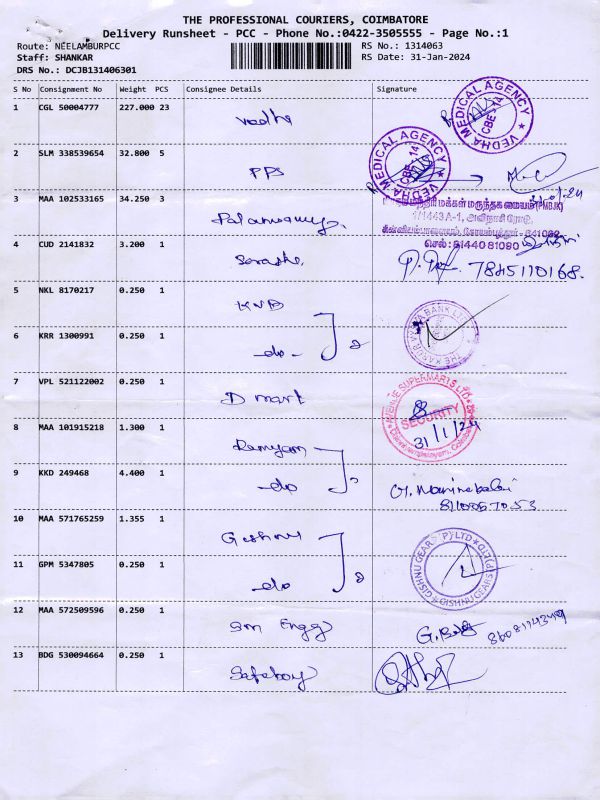 THE PROFESSIONAL COURIERS, COIMBATORE
Delivery Runsheet - PCC - Phone No.:0422-3505555 - Page No.:1
Route: NEELAMBURPCC
RS No.: 1314063
Staff: SHANKAR
RS Date: 31-Jan-2024
DRS No.: DCJB131406301
S No Consignment No Weight PCS Consignee Details Signature
1 CGL 50004777 227.000 23 Vedha
VEDHA MEDICAL AGENCY CBE 14
2 SLM 338539654 32.800 5 PPS
VEDHA MEDICAL AGENCY CBE 14
31/01/24
3 MAA 102533165 34.250 3
மக்கள் மருந்தகம் (PMBJK)
1/1443 A-1, அவிநாசி ரோடு,
கோயம்புத்தூர் - 641062
செல் : 8144081080
4 CUD 2141832 3.200 1
7845110168.
5 NKL 8170217 0.250 1 KVB
THE KARUR VYSYA BANK LTD
6 KRR 1300991 0.250 1 -do- 2
7 VPL 521122002 0.250 1 D mart
AVENUE SUPERMARTS LTD
SECURITY
31/1/24
8 MAA 101915218 1.300 1 Ramyam
9 KKD 249468 4.400 1 -do 2
10 MAA 571765259 1.355 1 Gishnu
GISHNU GEARS (P) LTD
11 GPM 5347805 0.250 1 -do 2
12 MAA 572509596 0.250 1 Sm Engg
13 BDG 530094664 0.250 1 Safeboy